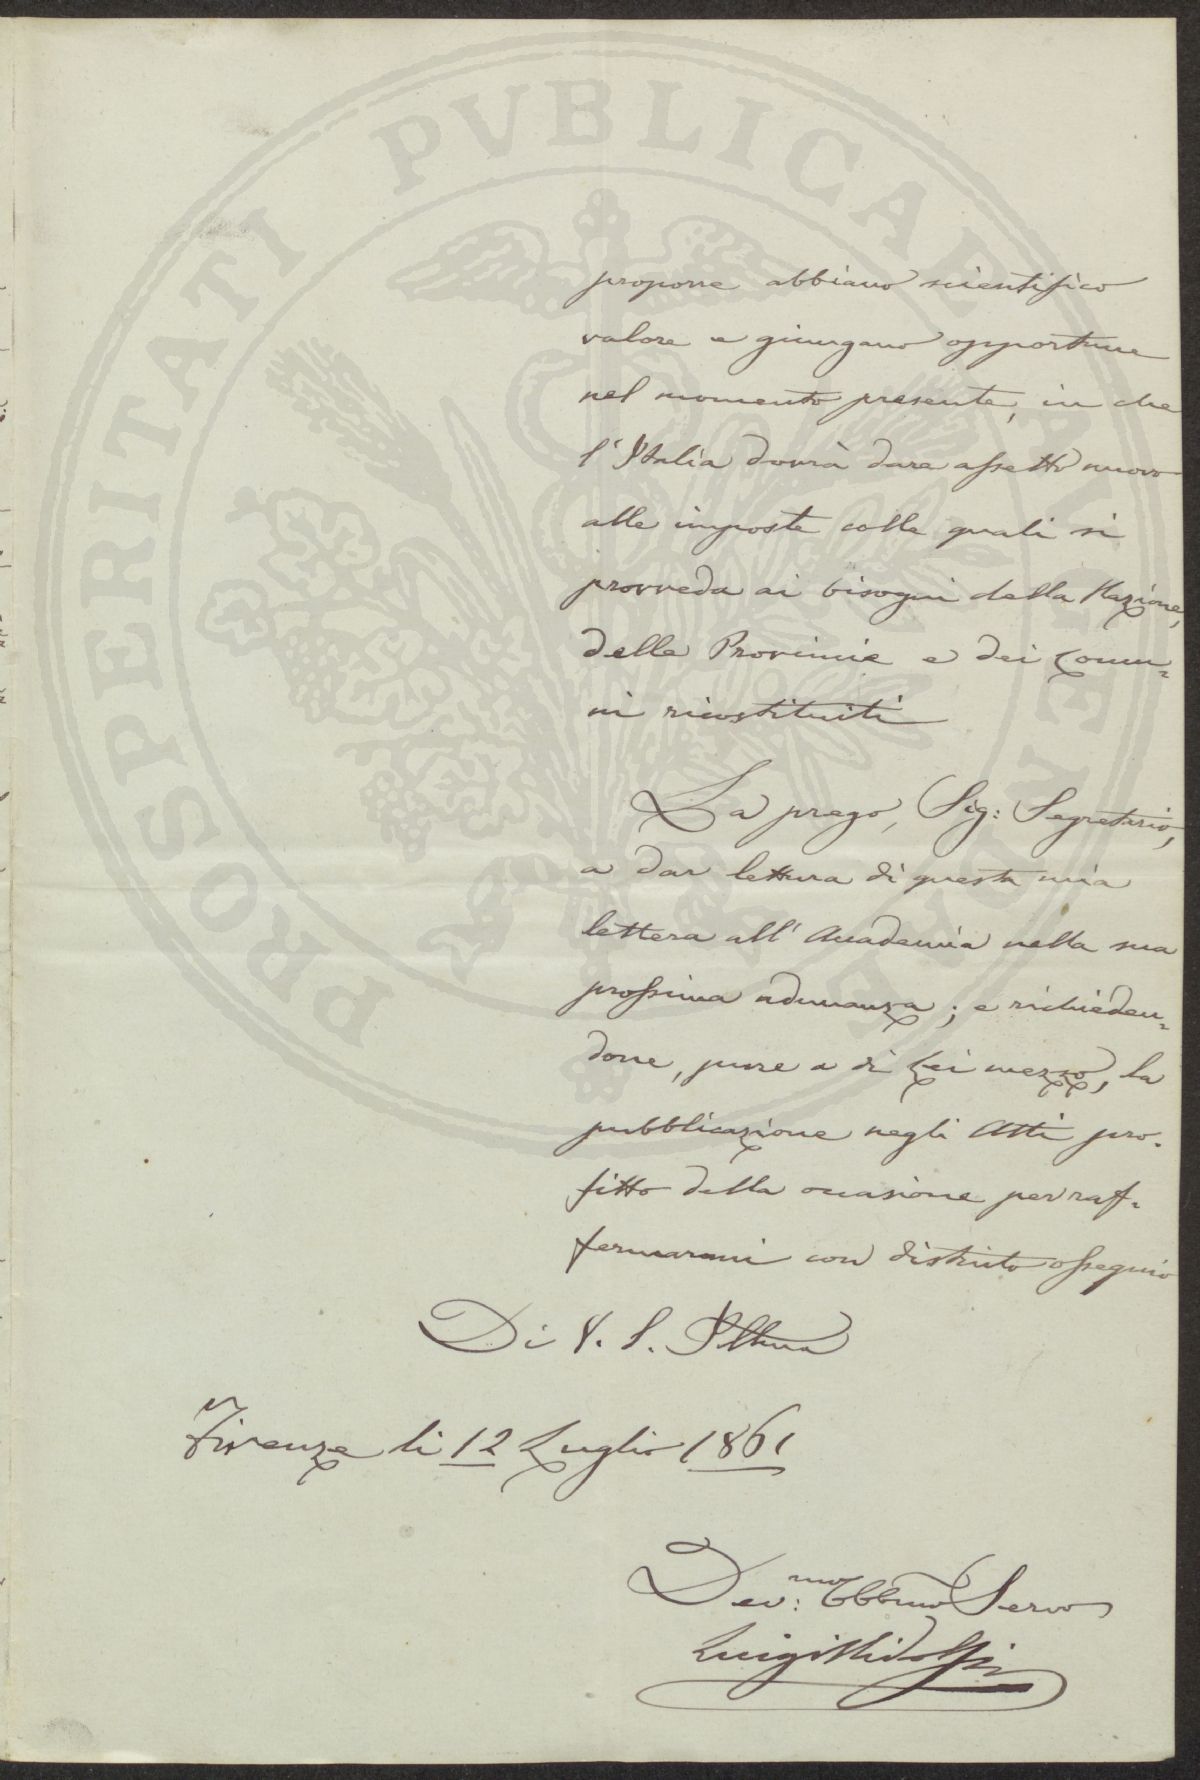 PROSPERITATI PVBLICAE AVGENDAE
propone abbiano scientifico
valore e giungano opportune
nel momento presente, in che
l'Italia dovrà dare assetto nuovo
alle imposte colle quali si
provveda ai bisogni della Nazione,
delle Provincie e dei Comu=
ni ricostituiti
La prego, Sig: Segretario,
a dar lettura di questa mia
lettera all'Accademia nella sua
prossima adunanza; e richieden=
done, pure a di Lei mezzo, la
pubblicazione negli Atti pro=
fitto della occasione per raf=
fermarmi con distinto ossequio
Di V. S. Illma
Firenze li 12 Luglio 1861
Dev:mo Obbmo Servo
Luigi Ridolfi